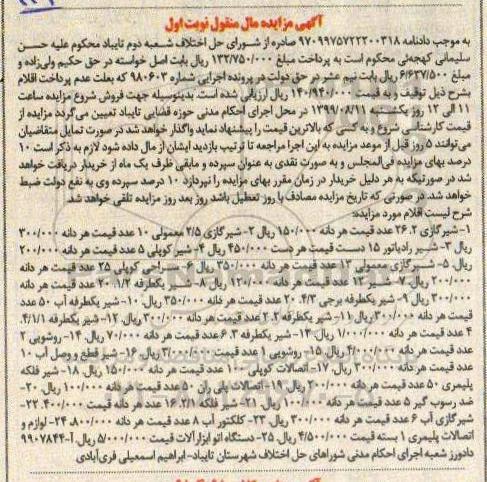 آگهی مزایده مال منقول نوبت اول
به موجب دادنامه ۹۷۰۹۹۷۵۷۲۲۲۰۰۳۱۸ صادره از شورای حل اختلاف شعبه دوم تایباد محکوم علیه حسن
سلیمانی کهجه‌ئی محکوم است به پرداخت مبلغ ۱۳۲/۷۵۰/۰۰۰ ریال بابت اصل خواسته در حق حکیم ولی‌زاده و
مبلغ ۶/۶۳۷/۵۰۰ ریال بابت نیم عشر در حق دولت در پرونده اجرایی شماره ۹۸۰۶۰۳ که بعلت عدم پرداخت اقلام
بشرح ذیل توقیف و به قیمت ۱۴۰/۹۴۰/۰۰۰ ریال ارزیابی شده است. بدینوسیله جهت فروش شروع مزایده ساعت
۱۱ الی ۱۲ روز یکشنبه ۱۳۹۹/۰۸/۱۱ در محل اجرای احکام مدنی حوزه قضایی تایباد تعیین می‌گردد مزایده از
قیمت کارشناسی شروع و به کسی که بالاترین قیمت را پیشنهاد نماید واگذار خواهد شد در صورت تمایل متقاضیان
می‌توانند ۵ روز قبل از موعد مزایده به این اجرا مراجعه تا ترتیب بازدید ایشان از مال داده شود لازم به ذکر است ۱۰
درصد بهای مزایده فی‌المجلس و به صورت نقدی به عنوان سپرده و مابقی ظرف یک ماه از خریدار دریافت خواهد
شد در صورتیکه به هر دلیل خریدار در زمان مقرر بهای مزایده را نپردازد ۱۰ درصد سپرده وی به نفع دولت ضبط
خواهد شد. در صورتی که تاریخ مزایده مصادف با روز تعطیل باشد روز بعد روز مزایده تلقی خواهد شد.
شرح لیست اقلام مورد مزایده:
۱- شیر گازی ۲۶.۲ عدد هر دانه ۱۵۰/۰۰۰ ریال ۲- شیر گازی ۲/۵ معمولی ۱۰ عدد قیمت هر دانه ۳۰۰/۰۰۰
ریال ۳- شیر رادیاتور ۱۵ دست قیمت هر دست ۴۵۰/۰۰۰ ریال ۴- شیر کوپلی ۵ عدد قیمت هر دانه ۲۰۰/۰۰۰
ریال. ۵- شیر گازی معمولی ۱۳ عدد قیمت هر دانه ۳۵۰/۰۰۰ ریال ۶- سراحی کوپلی ۲۵ عدد قیمت هر دانه
۲۰۰/۰۰۰ ریال ۷- شیر ۱۳ عدد قیمت هر دانه ۱۲۰/۰۰۰ ریال ۸- شیر یکطرفه ۴۰.۱/۲ عدد قیمت هر دانه
۳۰۰/۰۰۰ ریال ۹- شیر یکطرفه برجی ۲۰.۴/۳ عدد قیمت هر دانه ۳۵۰/۰۰۰ ریال. ۱۰- شیر یکطرفه آب ۵۰ عدد
قیمت هر دانه ۳۰۰/۰۰۰ ریال ۱۱- شیر یکطرفه ۲.۲ عدد قیمت هر دانه ۳۰۰/۰۰۰ ریال. ۱۲- شیر یکطرفه ۴.۱/۱
۴ عدد قیمت هر دانه ۱/۰۰۰/۰۰۰ ریال. ۱۳- شیر یکطرفه ۶.۳ عدد قیمت هر دانه ۷۰/۰۰۰ ریال. ۱۴- روشویی ۲
عدد قیمت هر دانه ریال. ۱۵- روشویی ۱ عدد قیمت ۳/۰۰۰/۰۰۰ ریال ۱۶- شیر قطع و وصل آب ۱۰
عدد قیمت هر دانه ۳۰۰/۰۰۰ ریال. ۱۷- اتصالات کوپلی ۱۰۰ عدد قیمت هر دانه ۱۵۰/۰۰۰ ریال. ۱۸- شیر فلکه
پلیمری ۵۰ عدد قیمت هر دانه ۲۰۰/۰۰۰ ریال ۱۹- اتصالات پلی ران ۵۰ عدد قیمت هر دانه ۱۰۰/۰۰۰ ریال ۲۰-
ضد رسوب گیر ۵ عدد قیمت هر دانه ۱۰۰/۰۰۰ ریال. ۲۱- شیر فلکه ۱۶.۲/۱ عدد هر دانه قیمت ۴۰۰/۰۰۰. ۲۲-
شیر گازی آب ۶ عدد هر دانه ۳۰۰/۰۰۰ ریال. ۲۳- کلکتور آب ۸ عدد هر دانه قیمت ۸۰۰/۰۰۰. ۲۴- لوازم و
اتصالات پلیمری ۱ بسته قیمت ۴/۵۰۰/۰۰۰ ریال. ۲۵- دستگاه اتو ابزارآلات قیمت ۵/۰۰۰/۰۰۰ ریال. آ-۹۹۰۷۸۴۴
دادورز شعبه اجرای احکام مدنی شوراهای حل اختلاف شهرستان تایباد- ابراهیم اسمعیلی فری‌آبادی